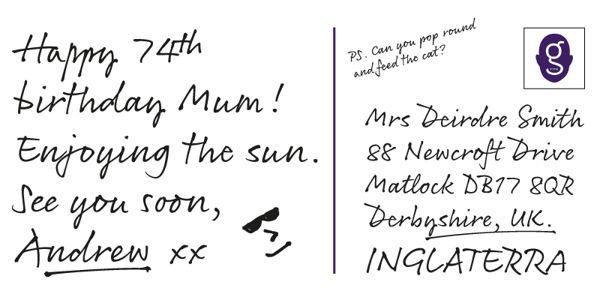 Happy 74th
birthday Mum!
Enjoying the sun.
See you soon,
Andrew xx
PS. Can you pop round
and feed the cat?
g
Mrs Deirdre Smith
88 Newcroft Drive
Matlock DB17 8QR
Derbyshire, UK.
INGLATERRA